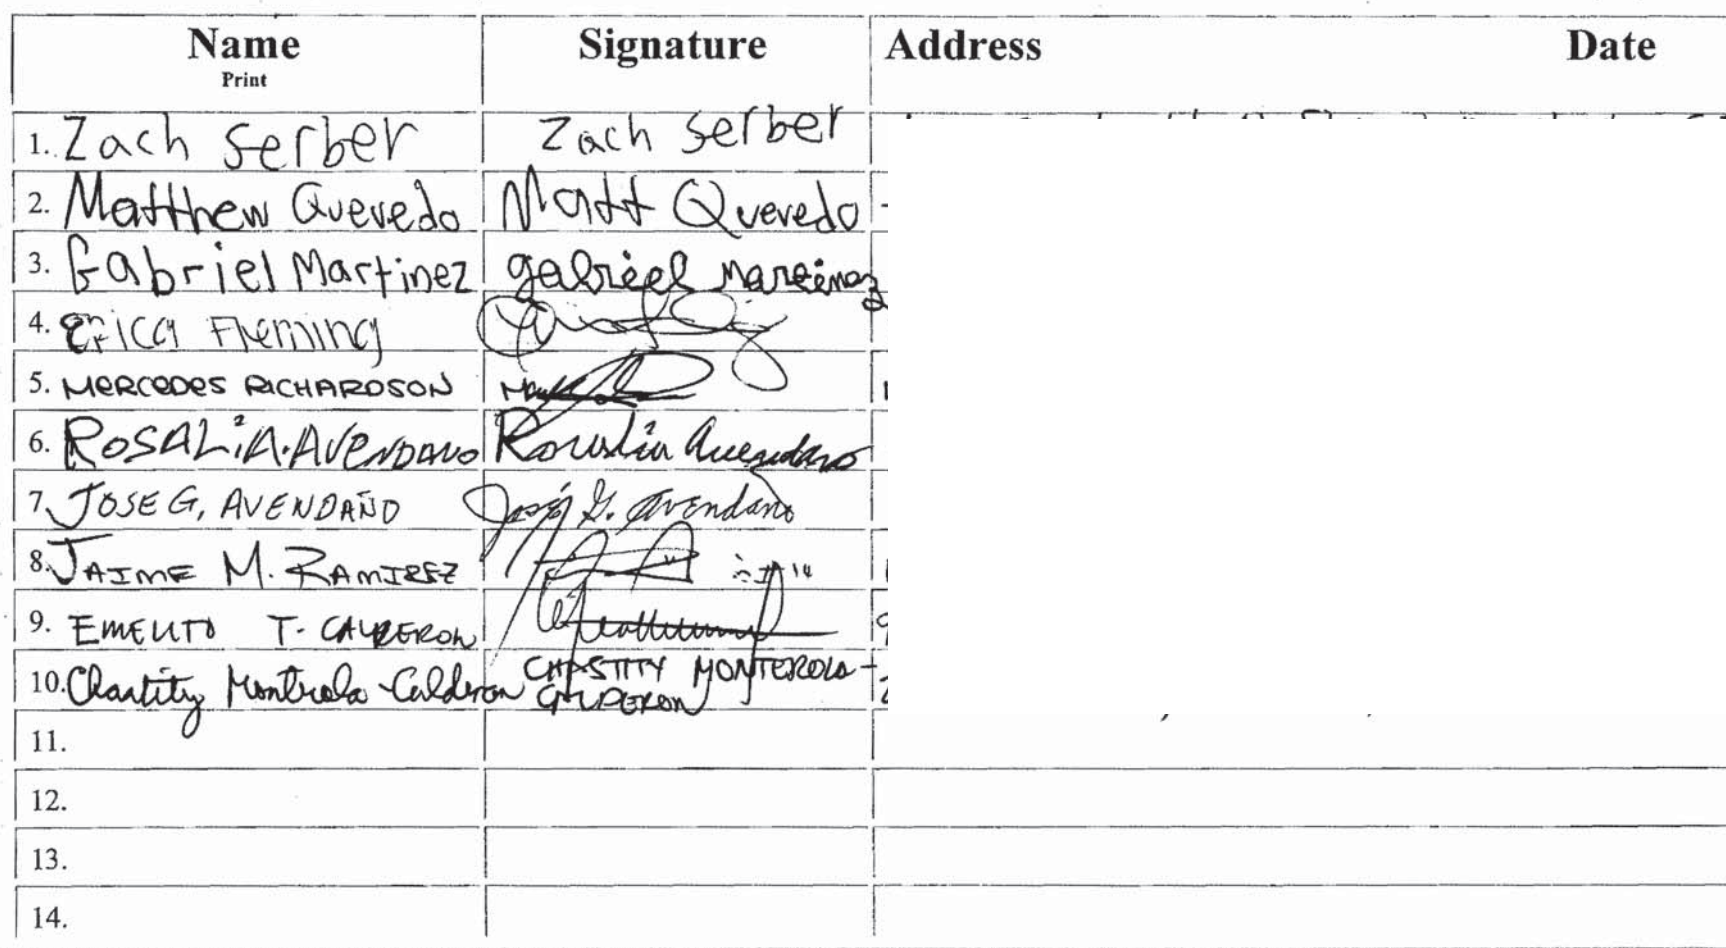 Name Signature Address Date
Print
1. Zach Serber Zach Serber
2. Matthew Quevedo Matt Quevedo
3. Gabriel Martinez gabriel martinez
4. Erica Fleming
5. MERCEDES RICHARDSON
6. ROSALiA. AVENDANO Rosalia Avendano
7. JOSE G. AVENDAÑO José G. Avendano
8. JAIME M. RAMIREZ
9. T. CALDERON
10. Chastity Calderon CHASTITY MONTEROLA-
CALDERON
11.
12.
13.
14.